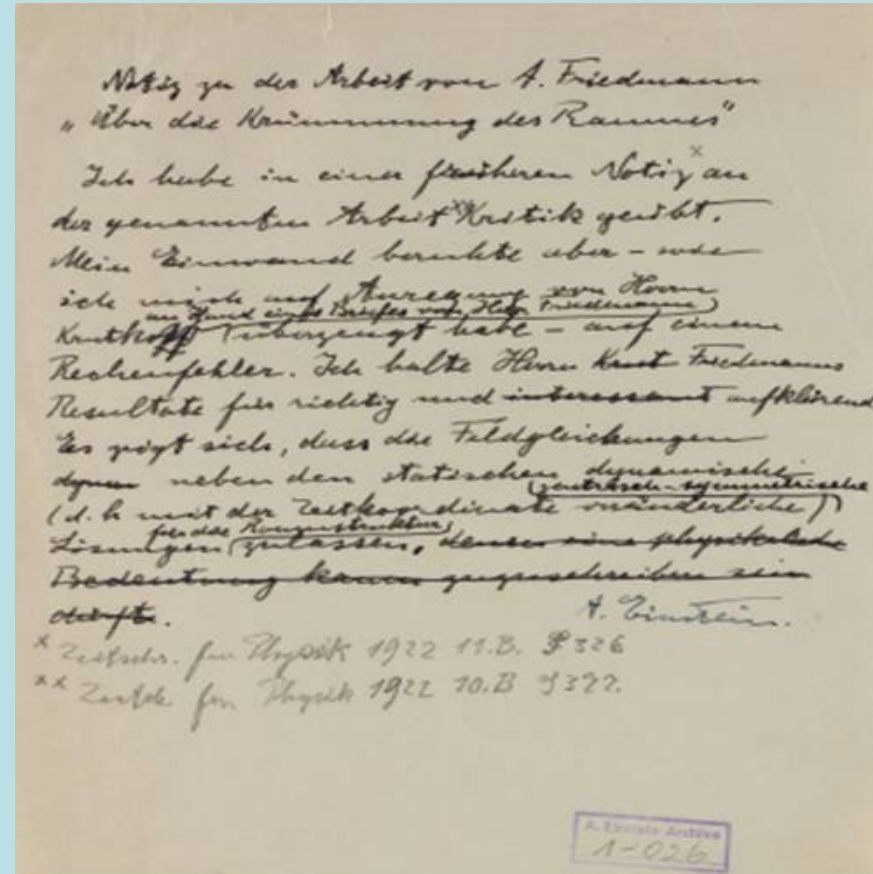 Notiz zu der Arbeit von A. Friedmann
„Über die Krümmung des Raumes“
Ich habe in einer früheren Notiz x an
der genannten Arbeit xx Kritik geübt.
Mein Einwand beruhte aber – wie
ich mich auf Anregung von Herrn
an Hand eines Briefes von Herrn Friedmann
Krutkoff überzeugt habe – auf einem
Rechenfehler. Ich halte Herrn Krut Friedmanns
Resultate für richtig und interessant aufklärend
Es zeigt sich, dass die Feldgleichungen
dynam neben den statischen dynamische
zentrisch-symmetrische
(d. h mit der Zeitkoordinate veränderliche)
für die Raumstruktur
Lösungen zulassen, denen eine physikalische
Bedeutung kaum zuzuschreiben sein
dürfte.
A. Einstein.
x Zeitschr. für Physik 1922 11.B. S 326
xx Zeitsch für Physik 1922 10.B S 377.
A. Einstein Archive
1-026